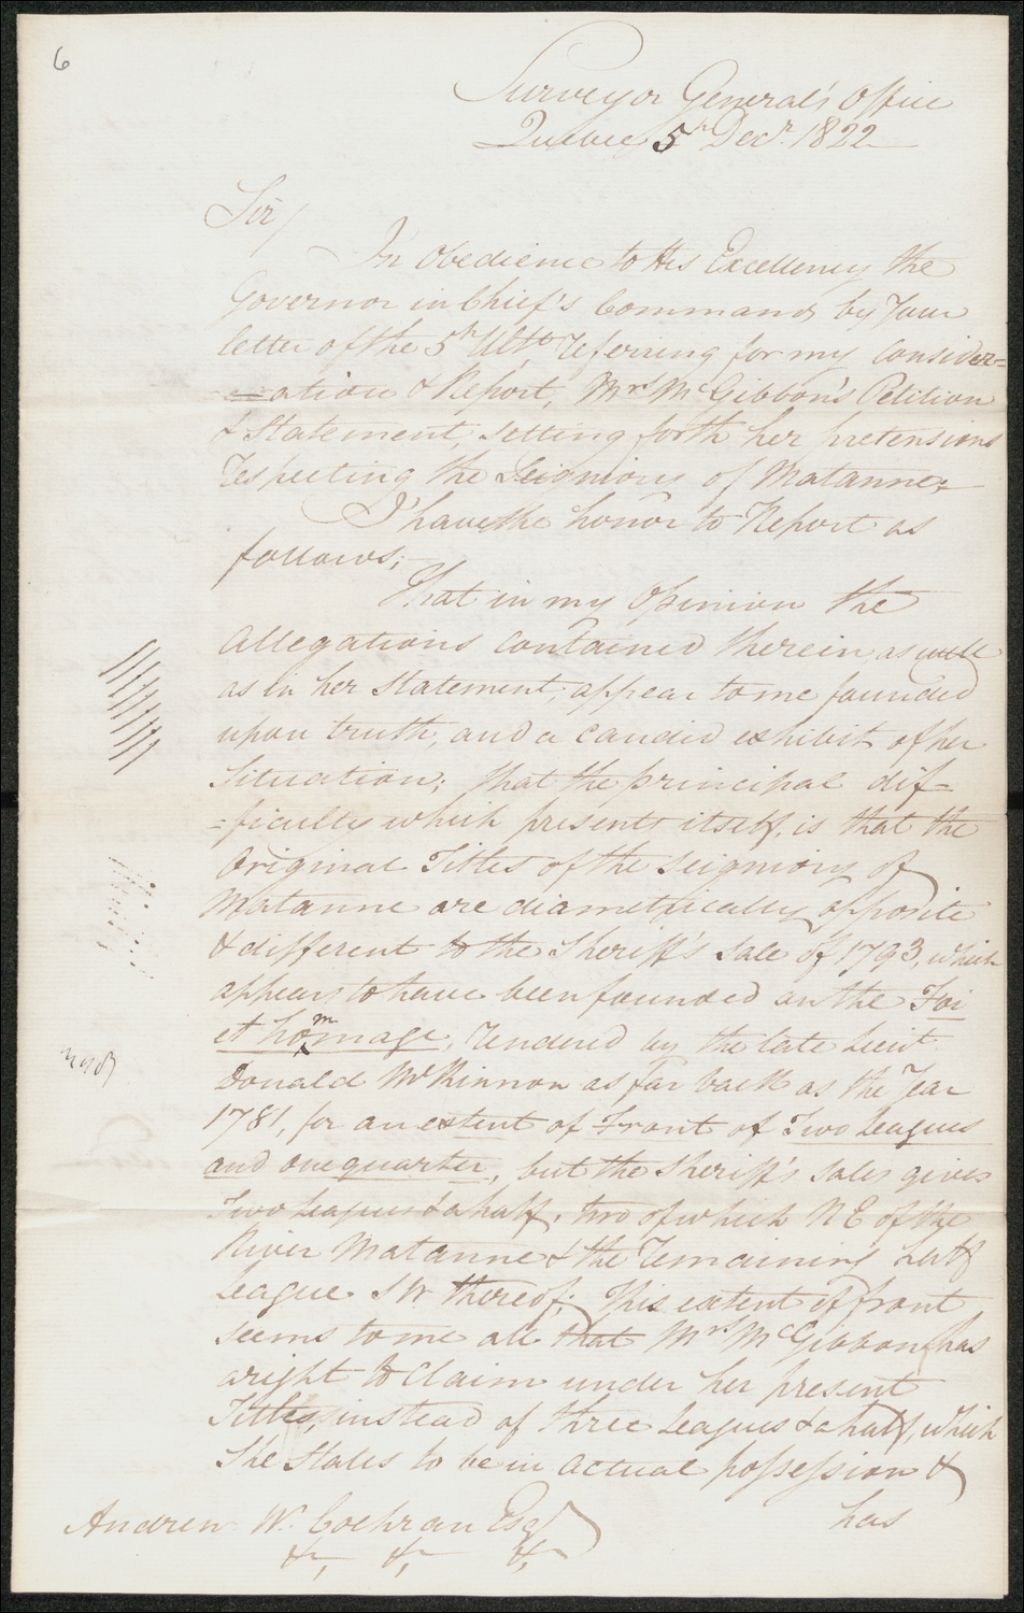 6
Surveyor General's Office
Quebec 5th Decr. 1822
Sir/
In Obedience to His Excellency the
Governor in Chief's Commands by Your
letter of the 5th Ulto. referring for my Consider=
=ation & Report, Mrs McGibbon's Petition
& Statement, setting forth her pretensions
respecting the Seigniory of Matanne;
I have the honor to Report as
follows;
That in my Opinion the
Allegations Contained therein as well
as in her Statement, appear to me founded
upon truth, and a Candid exhibit of her
Situation; that the principal dif=
=ficulty which presents itself, is that the
Original Titles of the Seigniory of
Matanne are diametrically opposite
& different to the Sheriff's Sale of 1793, which
appears to have been founded on the Foi
et hommage, rendered by the late Lieut.
Donald McKinnon as far back as the Year
1781, for an extent of Front of Two Leagues
and one quarter, but the Sheriff's Sales gives
Two Leagues & a half, two of which NE of the
River Matanne & the remaining half
League SW thereof; This extent of front
seems to me all that Mrs McGibbon has
a right to Claim under her present
Titles, instead of three Leagues & a half, which
She States to be in actual possession &
has
Andrew W. Cochran Esqr
&c, &c, &c,